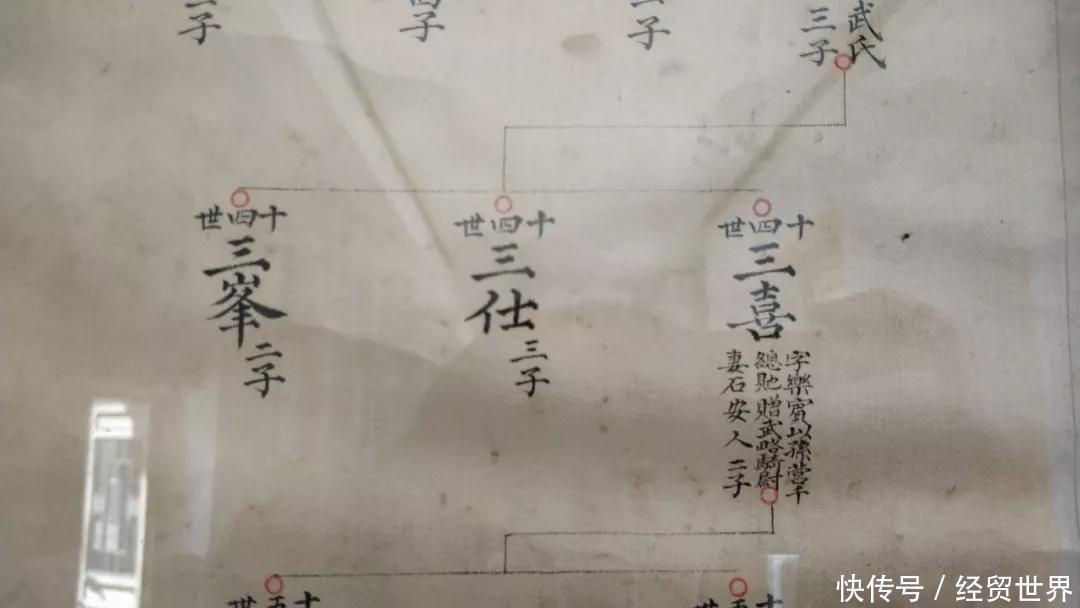 武氏
三子
子
子
子
十四世
三喜
字樂賓以孫營千
總貤贈武略騎尉
妻石安人二子
十四世
三仕
三子
十四世
三峯
二子
十五世
十五世
快传号 / 经贸世界